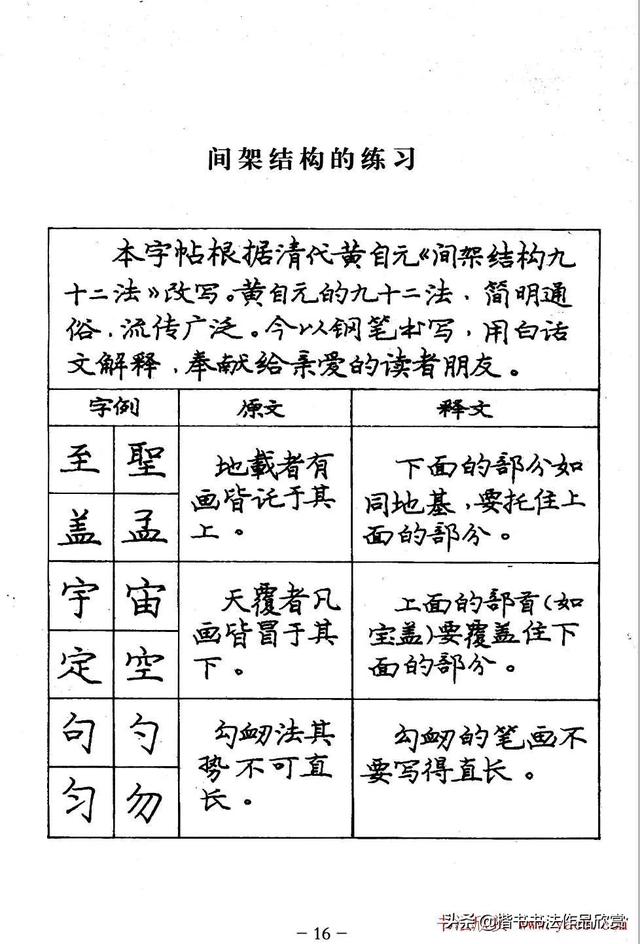 间架结构的练习
本字帖根据清代黄自元《间架结构九
十二法》改写。黄自元的九十二法，简明通
俗，流传广泛。今以钢笔书写，用白话
文解释，奉献给亲爱的读者朋友。
字例 原文 释文
至 聖
盖 孟
地載者有
画皆讬于其
上。
下面的部分如
同地基，要托住上
面的部分。
宇 宙
定 空
天覆者凡
画皆冒于其
下。
上面的部首(如
宝盖)要覆盖住下
面的部分。
句 勺
匀 勿
勾衂法其
势不可直
长。
勾衂的笔画不
要写得直长。
- 16 -
头条@楷书书法作品欣赏